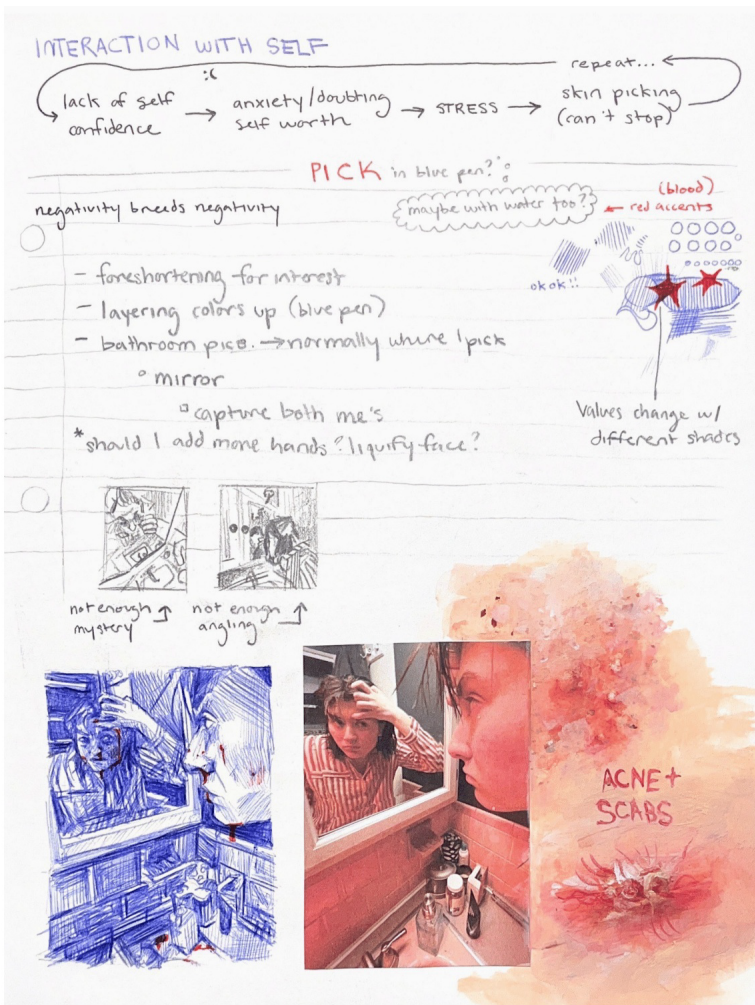 INTERACTION WITH SELF
:(
repeat...
lack of self confidence → anxiety/doubting self worth → STRESS → skin picking (can't stop)
PICK in blue pen?
negativity breeds negativity
maybe with water too?
(blood)
← red accents
okok!!
- foreshortening for interest
- layering colors up (blue pen)
- bathroom pics. → normally where I pick
◦ mirror
▫ capture both me's
*should I add more hands? liquify face?
Values change w/
different shades
not enough ↑
mystery
not enough ↑
angling
ACNE +
SCABS